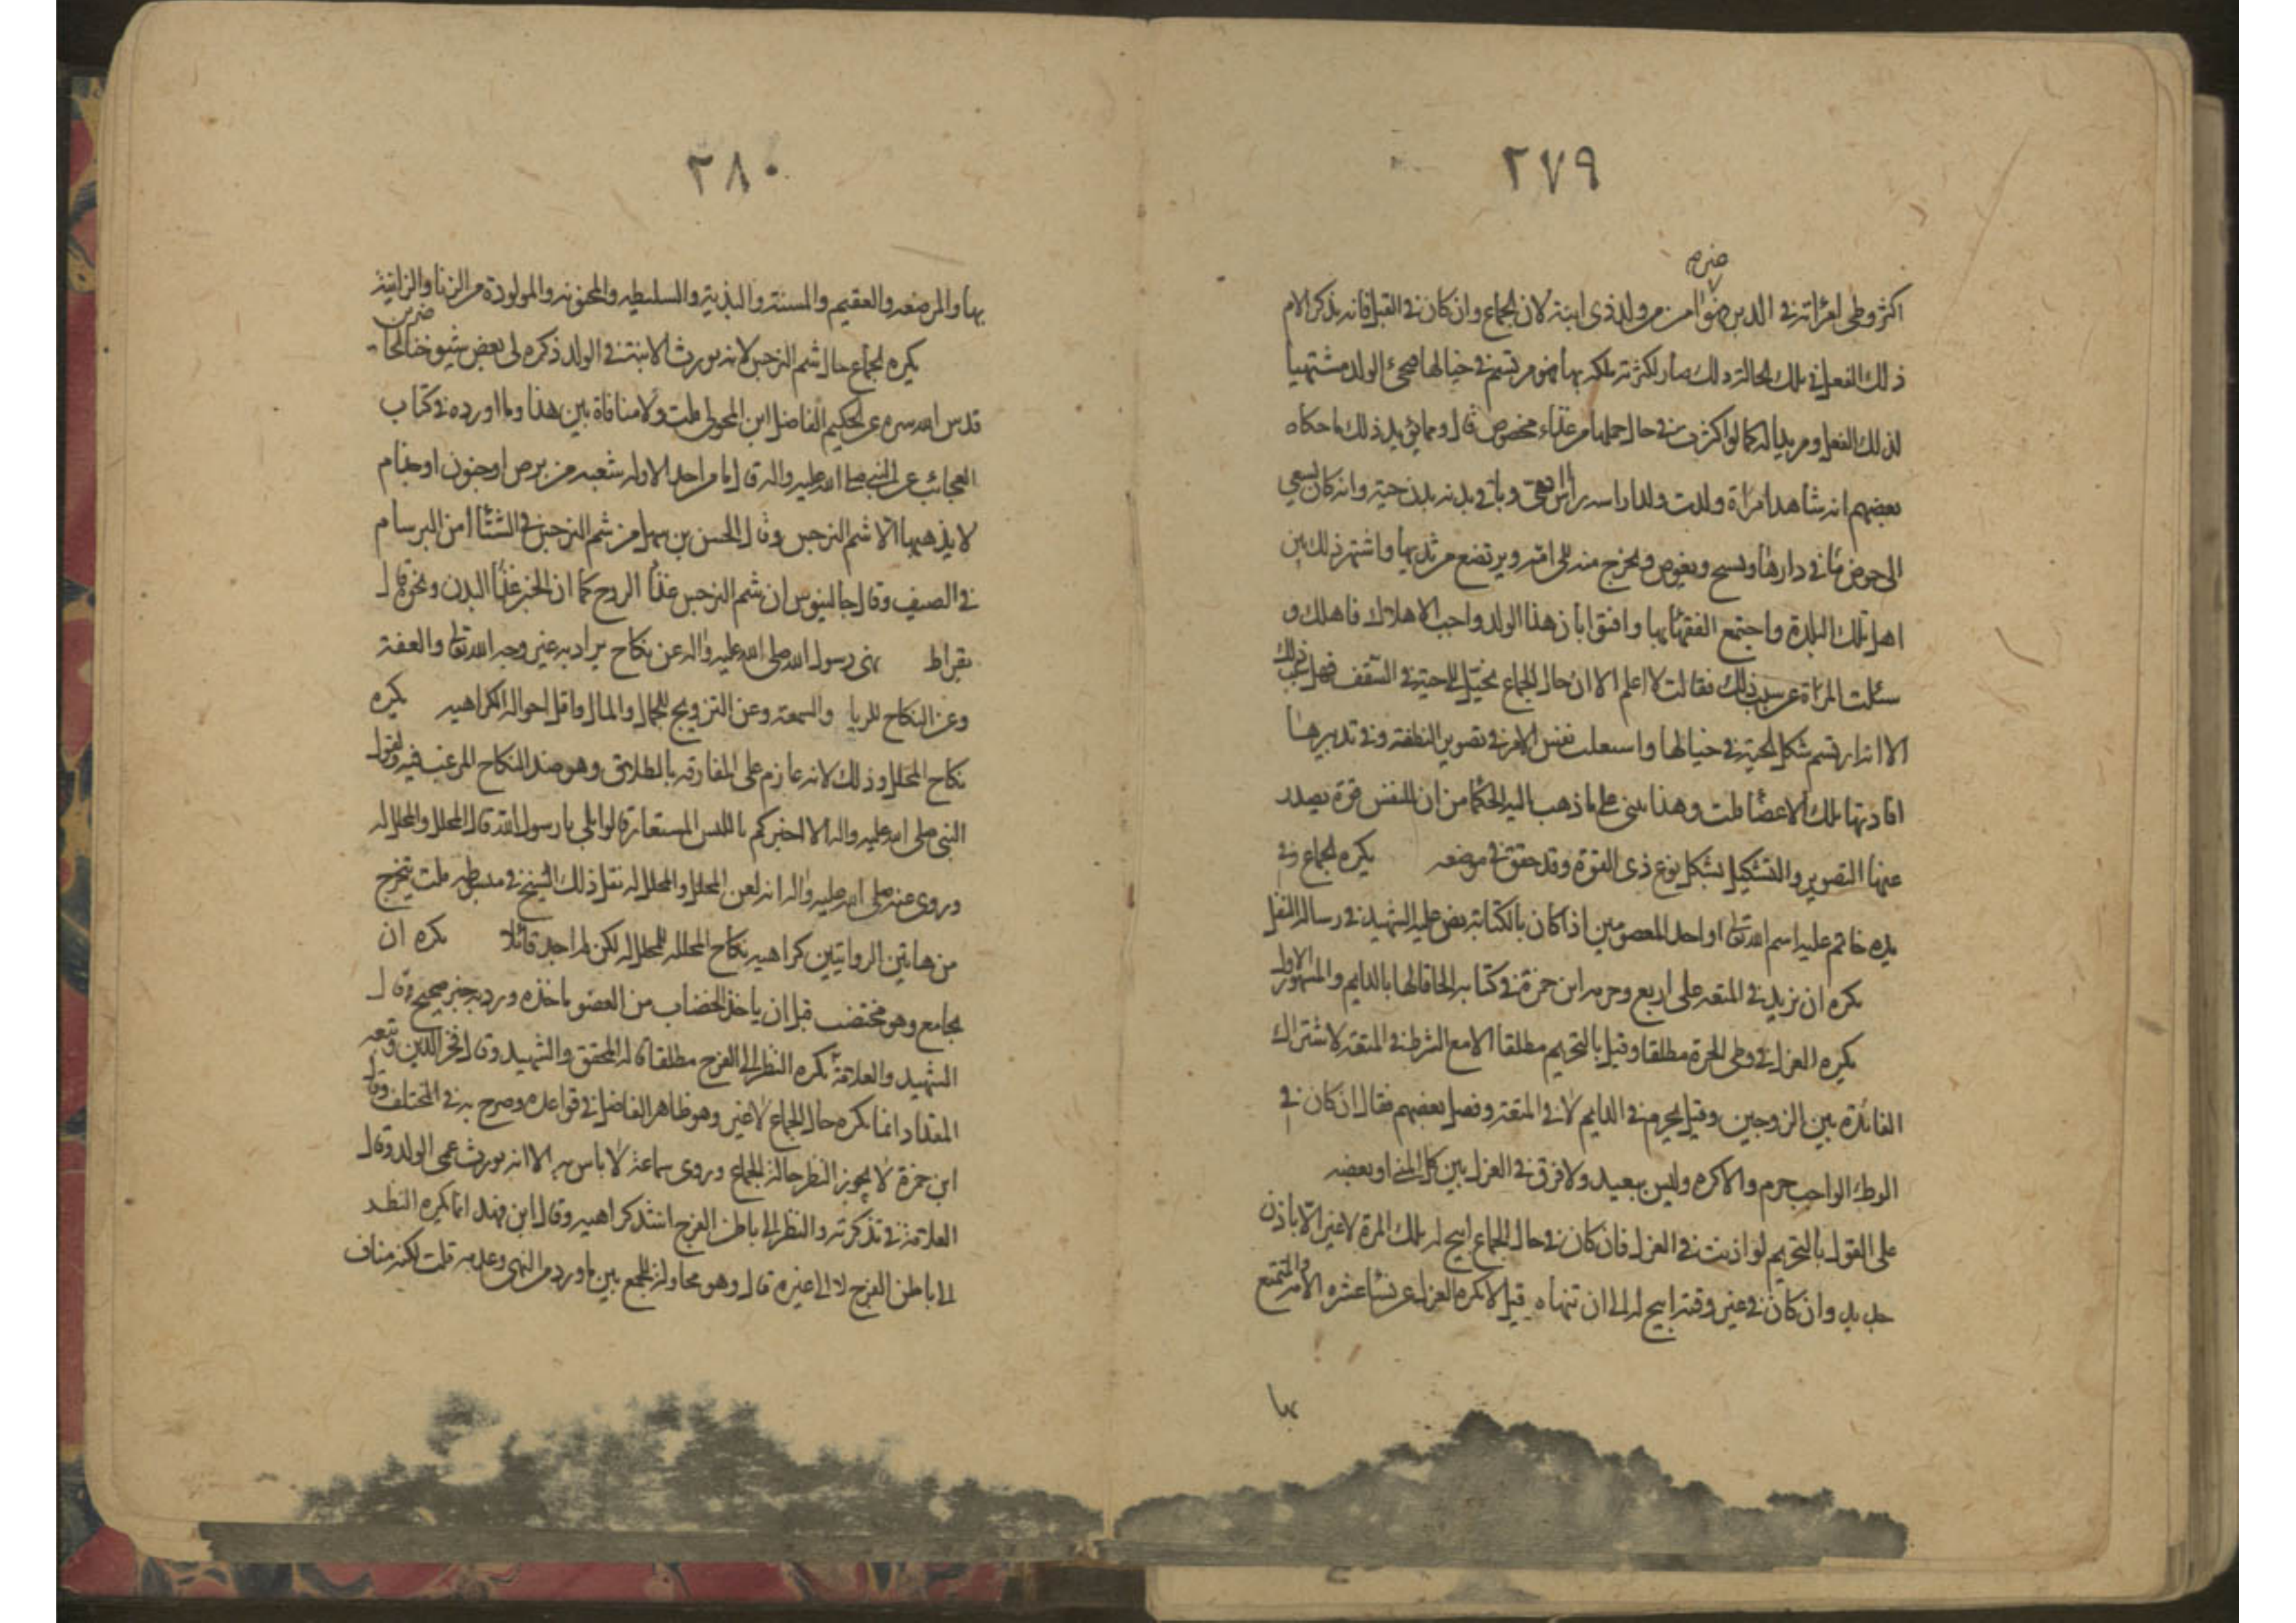 ٢٧٩
اكثر وطى امراته فى الدبر من ولد ذى ابنة لان الجماع وان كان فى القبل فانه يذكر الام
ذلك الفعل فى تلك الحالة وذلك صار لكثرته ملكه بها فيرتسم فى خيالها فيجئ الولد مشتهيا
لذلك الفعل ومريدا له كما لو اكثرت فى حال حملها من غذاء مخصوص قال ومما يؤيد ذلك ما حكاه
بعضهم انه شاهد امراة ولدت ولدا راسه راس افعى وباقى بدنه بدن حية وانه كان يسعى
الى حوض ما فى دارها ويسبح ويغوص ويخرج منه الى امه ويرتضع من ثديها واشتهر ذلك بين
اهل تلك البلدة واجتمع الفقهاء بها وافتوا بان هذا الولد واجب الاهلاك فاهلك و
سئلت المراة عن سبب ذلك فقالت لا اعلم الا ان حال الجماع تخيل لى حية فى السقف فهل سبب ذلك
الا انه ارتسم شكل الحية فى خيالها واستعملت نفس الام فى تصوير النطفة وفى تدبيرها
افادتها تلك الاعضا قلت وهذا مبنى على ما ذهب اليه الحكما من ان للنفس قوة يصدر
عنها التصوير والتشكيل بشكل نوع ذى القوة وقد حقق فى موضعه يكره الجماع وفى
يده خاتم عليه اسم الله تعالى او احد المعصومين اذا كان بالكتابة نص عليه الشهيد فى رسالة النفل
يكره ان يزيد فى المتعه على اربع وحرمه ابن حمزة فى كتابه الحاقا لها بالدايم والمشهور الاول
يكره العزل فى وطى الحرة مطلقا وقيل بالتحريم مطلقا الا مع الشرط فى المتعة لاشتراك
الفائدة بين الزوجين وقيل يحرم فى الدايم لا فى المتعة وفصل بعضهم فقال ان كان فى
الوطئ الواجب حرم والا كره وليس ببعيد ولا فرق فى العزل بين كل المنى او بعضه
على القول بالتحريم لو اذنت فى العزل فان كان فى حال الجماع ابيح له تلك المرة لا غير الا باذن
جديد وان كان فى غير وقته ابيح له الى ان تنهاه قيل لا يكره العزل عن نساء عشره الامة والمتمتع
بها
٢٨٠
بها والمرضعه والعقيم والمسنة والبذية والسليطه والمجنونه والمولودة من الزنا والزانية
يكره الجماع حال شم النرجس لانه يورث الابنة فى الولد ذكره لى بعض شيوخنا
قدس الله سره عن الحكيم الفاضل ابن قلت ولا منافاة بين هذا وما اورده فى كتاب
العجائب عن النبى صلى الله عليه واله قال ما من احد الا وله شعبه من برص او جنون او جذام
لا يذهبها الا شم النرجس وقال الحسن بن سهل من شم النرجس فى الشتاء امن البرسام
فى الصيف وقال جالينوس ان شم النرجس غذا الروح كما ان الخبز غذا البدن ونحوه قال
بقراط نهى رسول الله صلى الله عليه واله عن نكاح يراد به غير وجه الله تعالى والعفة
وعن النكاح للريا والسمعة وعن التزويج للجمال والمال واقل احواله الكراهيه يكره
نكاح المحلل وذلك لانه عازم على المفارقه بالطلاق وهو ضد النكاح المرغب فيه ولقول
النبى صلى الله عليه واله الا اخبركم بالتيس المستعار قالوا بلى يا رسول الله قال المحلل والمحلل له
وروى عنه صلى الله عليه واله انه لعن المحلل والمحلل له نقل ذلك الشيخ فى مبسوطه قلت يتخرج
من هاتين الروايتين كراهيه نكاح المحلله للمحلل له لكن لم اجد قائلا يكره ان
يجامع وهو مختضب قبل ان ياخذ الخضاب من العضو ماخذه ورد به خبر صحيح وقال
الشهيد والعلامة يكره النظر الى الفرج مطلقا قاله المحقق والشهيد وقال فخر الدين وتبعه
المقداد انما يكره حال الجماع لا غير وهو ظاهر الفاضل فى قواعده وصرح به فى المختلف وقال
ابن حمزة لا يجوز النظر حالة الجماع وروى سماعة لا باس به الا انه يورث عمى الولد وقال
العلامة فى تذكرته والنظر الى باطن الفرج اشد كراهيه وقال ابن فهد انما يكره النظر
الى باطن الفرج لا الى غيره قال وهو محاولة للجمع بين ما ورد من النهى وعدمه قلت لكنه مناف